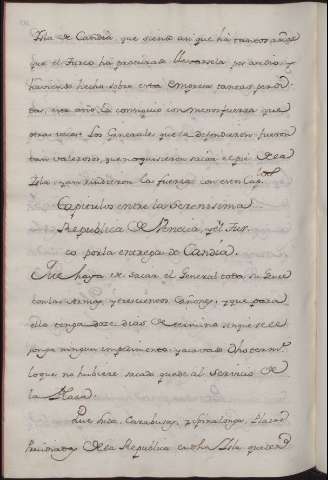 Isla de Candia, que siendo asi que há tantos años
que el Turco há procurado llevarsela por asedio, y
haviendo hecho sobre esta Empresa tantas perdi-
das, este año la consiguio con menos fuerza que
otras veces. Los Generales que la defendieron fueron
tan valerosos, que no quisieron sacar el pie de la
Isla, y an rindieron la fuerza con estos Cap.los
Capitulos entre la Serenissima
Republica de Venecia, y el Tur-
co por la entrega de Candia.
Que haya de sacar el General toda su Gente
con las Armas, y trescientos Cañones, y que para
ello tenga doze dias de termino sin que se le
ponga ningun impedimento, y pasado dho term.o
lo que no hubiere sacado quede al servicio de
la Plaza.
Que Suda, Carabusa, y Spinalonga, Plazas
de la Republica en dha Isla queden